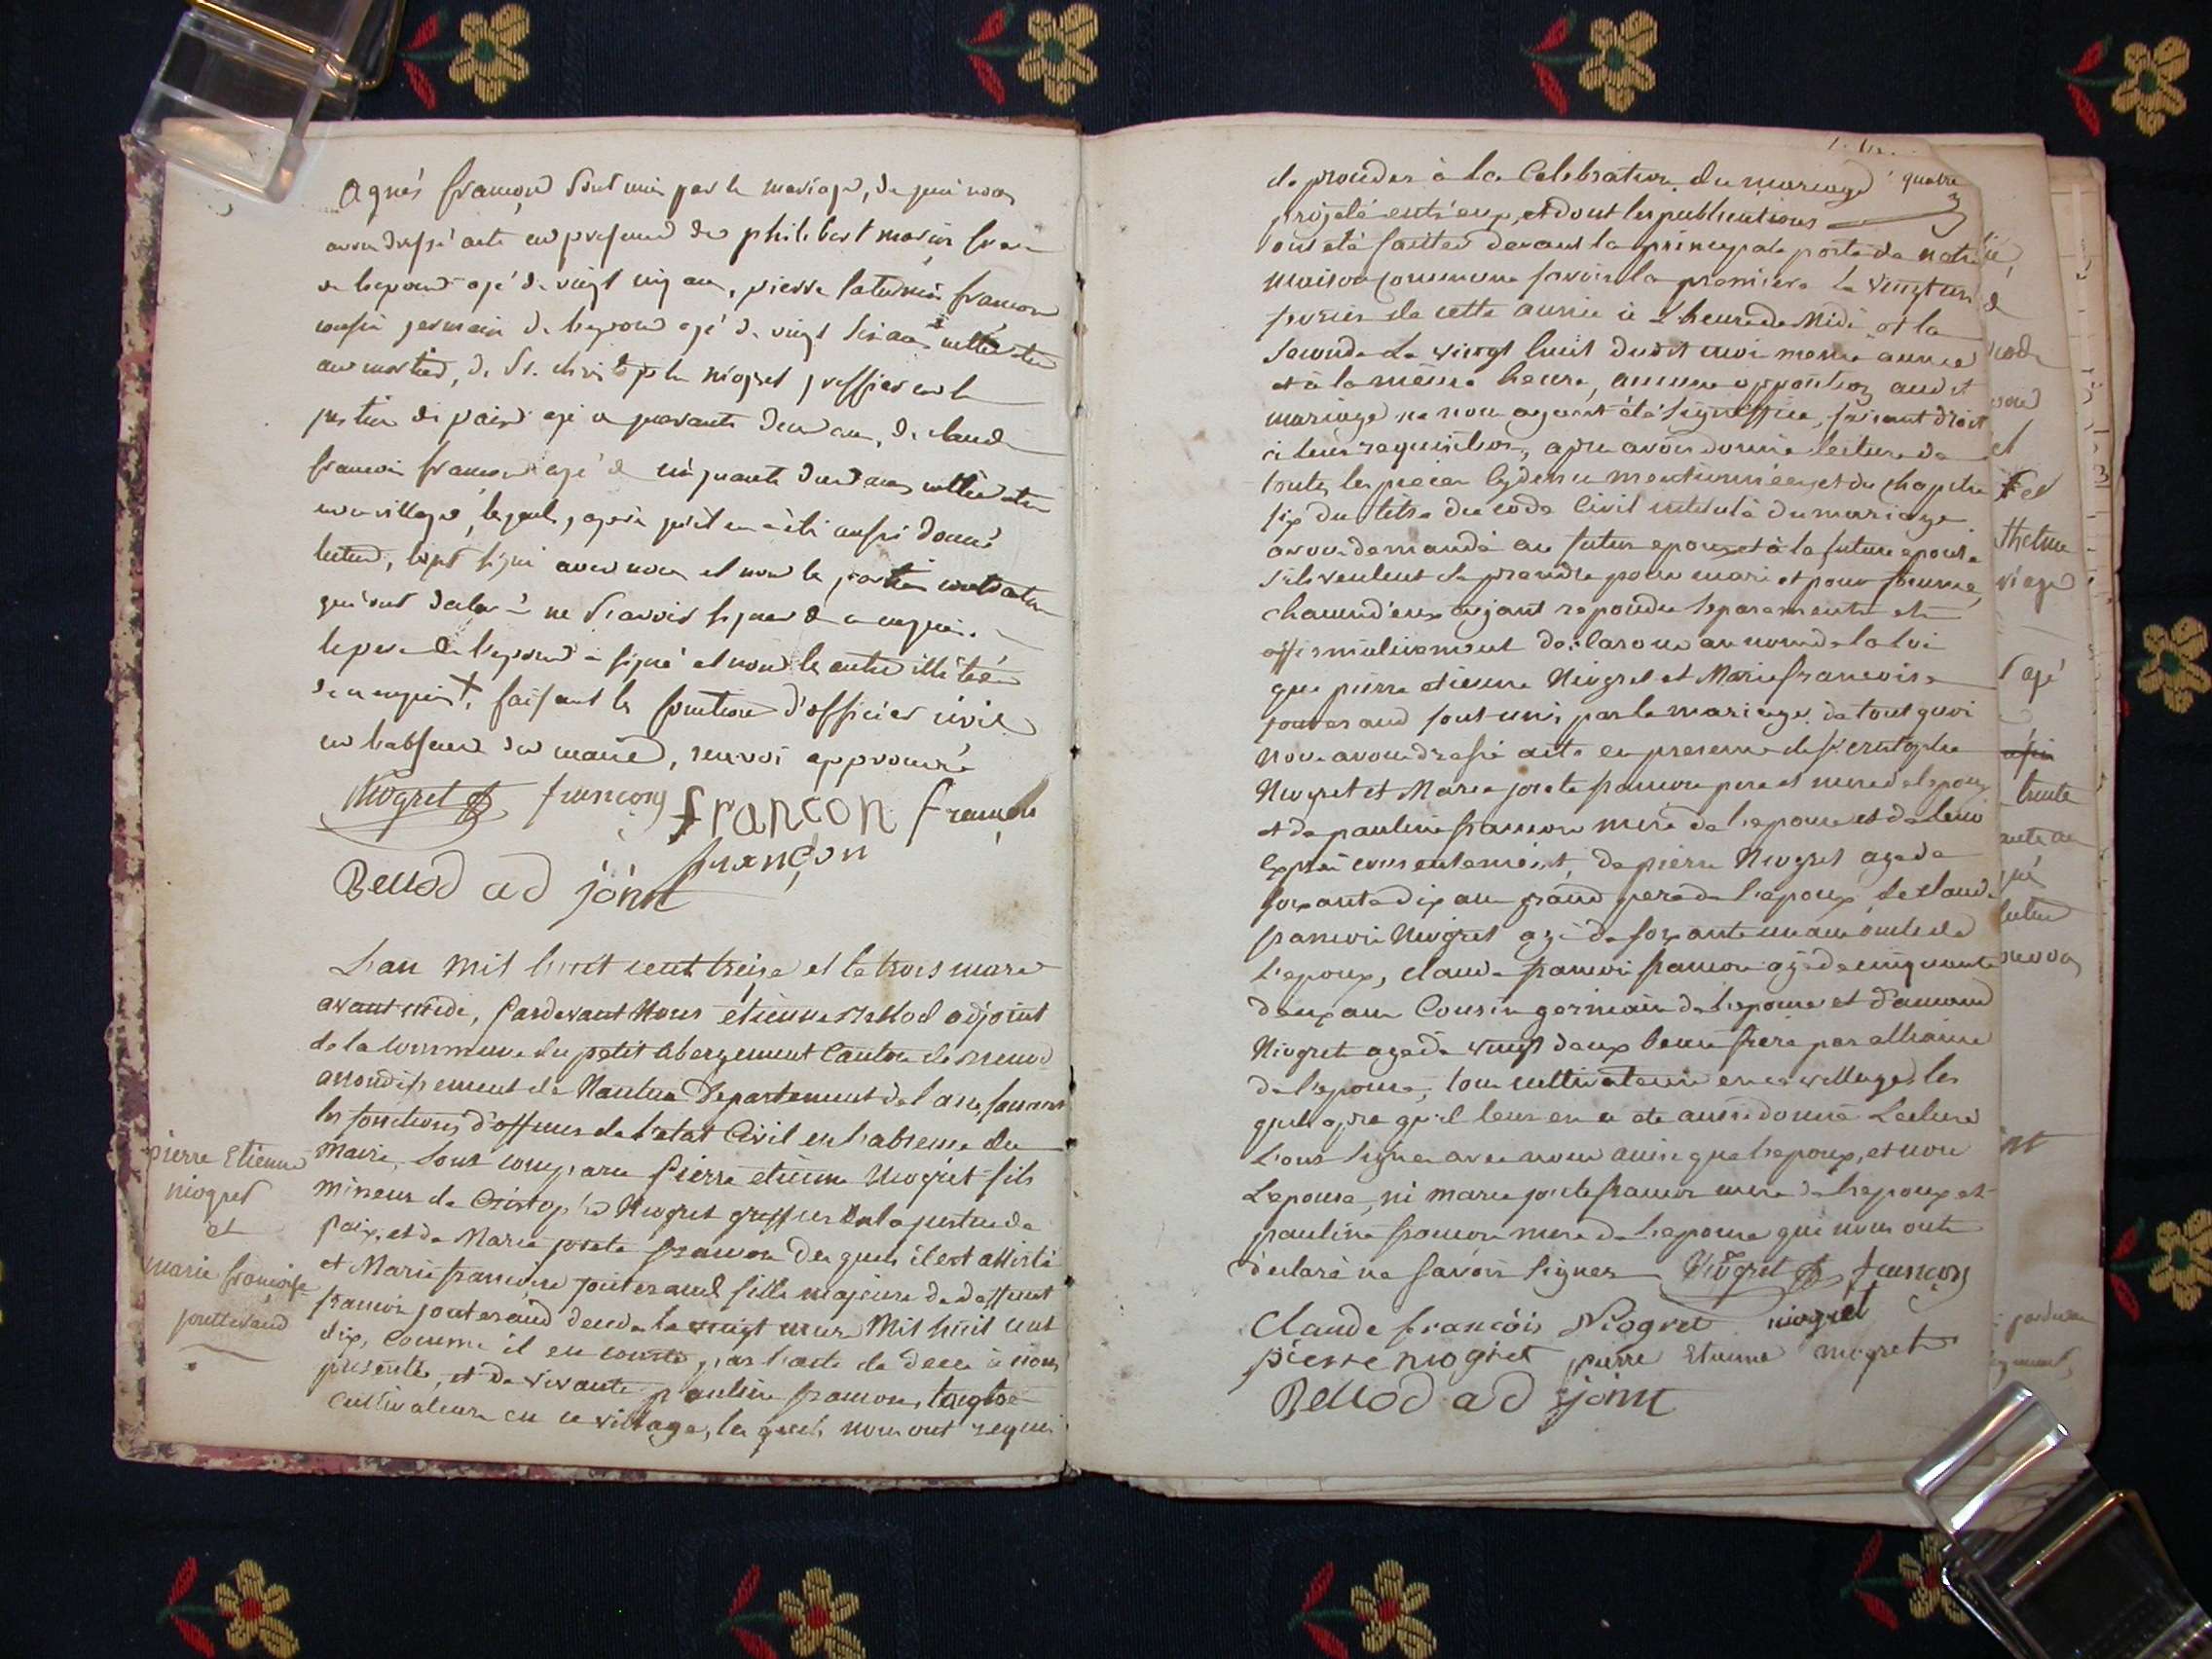 agnés françon sont unis par le mariage, de quoi nous
avons dressé acte en presence de philibert marin frere
de lepoux agé de vingt cinq ans, pierre saturnin françon
cousin germain de lepoux agé de vingt six ans cultivateur
de Sr. christophe niogret greffier en la
justice de paix agé de quarante deux ans, de claude
francois françon agé de cinquante deux ans cultivateur
en ce village, lesquels, apres qu'il en a été aussi donné
lecture, ont signé avec nous et non les parties contractantes
qui ont declaré ne scavoir signer de ce enquis.
le pere de lepoux a signé et non les autres illiterés
de ce enquis +, faisant les fonctions d'officier civil
en l'absence du maire, renvoi approuvé
Niogret françon françon françon
françon
Bellod adjoint
L'an mil huit cent treize et le trois mars
avant midi, Pardevant Nous etienne Bellod adjoint
de la commune du petit abergement Canton de Brenod
arrondissement de Nantua Departement de l'ain faisant
les fonctions d'officier de l'etat Civil en l'absence du
Maire, sont comparu Pierre etienne Niogret fils
mineur de Cristophe Niogret greffier de la justice de
paix, et de Marie josete françon des quels il est assisté
et Marie françoise jouterand fille majeure de deffunt
francois jouterand decede le vingt mars Mil huit cent
dix, comme il en conste par l'acte de deces à nous
presenté, et de vivante pauline françon, tous
cultivateurs en ce village, les quels nous ont requis
pierre Etienne
niogret
et
marie françoise
jouterand
quatre
de proceder à la Celebration du mariage
projeté entr'eux, et dont les publications
ont été faites devant la principale porte de notre
maison commune savoir la premiere le vingt un
fevrier de cette année à l'heure de Midi et la
seconde le vingt huit dudit mois meme année
et à la même heure, aucune opposition audit
mariage ne nous ayant été signiffiée, faisant droit
à leur requisition, apres avoir donné lecture de
toutes les pieces cydessus mentionnées et du chapitre
six du titre du code Civil intitulé du mariage
avons demandé au futur epoux et à la future epouse
s'ils veulent se prendre pour mari et pour femme,
chacun d'eux ayant repondu separement et
affirmativement declarons au nom de la loi
que pierre etienne Niogret et Marie francoise
jouterand sont unis par le mariage de tout quoi
nous avons dressé acte en presence de Sr. cristophe
Niogret et Marie josete françon pere et mere de lepoux
et de pauline françon mere de l'epouse et de leur
exprès consentement, de pierre Niogret agé de
soixante dix ans grand pere de l'epoux, de claude
francois Niogret agé de soixante un ans oncle de
l'epoux, claude francois françon agé de cinquante
deux ans Cousin germain de l'epouse et d'amand
Niogret agé de vingt deux beau frere par alliance
de l'epouse, tous cultivateurs en ce village, les
quels apres qu'il leur en a été aussi donné Lecture
l'ont signer avec nous ainsi que lepoux, et non
L'epouse, ni marie josete françon mere de lepoux et
pauline françon mere de lepouse qui nous ont
declaré ne savoir signer Niogret françon
Claude françois Niogret niogret
pierre niogret pierre Etienne niogret
Bellod adjoint